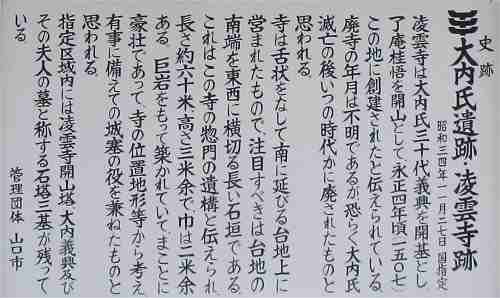 史跡
大内氏遺跡・凌雲寺跡
昭和三四年一一月二七日 国指定
凌雲寺は大内氏三十代義興を開基とし
了庵桂悟を開山として永正四年頃(一五〇七)
この地に創建されたと伝えられている。
廃寺の年月は不明であるが恐らく大内氏
滅亡の後いつの時代かに廃されたものと
思われる。
寺は舌状をなして南に延びる台地上に
営まれたもので、注目すべきは台地の
南端を東西に横切る長い石垣である。
これはこの寺の惣門の遺構と伝えられ、
長さ約六十米、高さ三米余で巾は二米余
ある。巨岩をもって築かれていてまことに
豪壮であって、寺の位置地形等から考え
有事に備えての城塞の役を兼ねたものと
思われる。
指定区域内には凌雲寺開山塔、大内義興及び
その夫人の墓と称する石塔三基が残って
いる。
管理団体 山口市